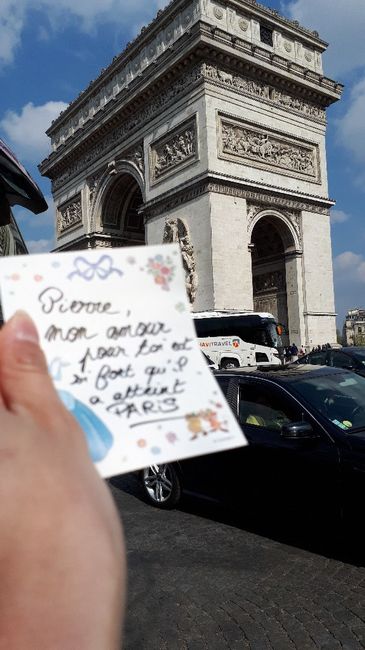 Pierre,
mon amour
pour toi est
si fort qu'il
a atteint
PARIS